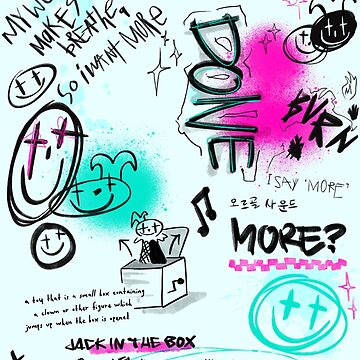 MY WO
MAKES
BREATHE,
SO I WANT MORE
DONE
BURN
I SAY 'MORE'
오르골 사운드
MORE?
a toy that is a small box containing
a clown or other figure which
jumps up when the box is opened
JACK IN THE BOX